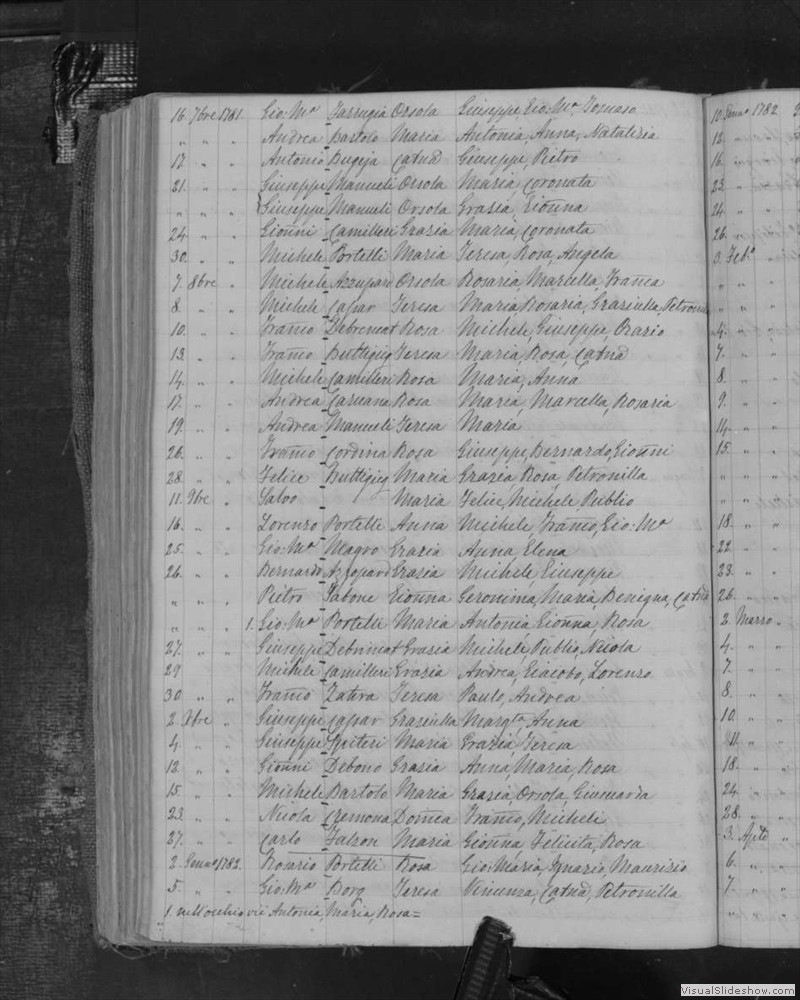 16. 7bre 1781. Gio: Mª Farrugia Orsola Giuseppe, Gio: Mª, Tomaso
" " " Andrea Bartolo Maria Antonia, Anna, Natalizia
17. " " Antonio Bugeja Catnª Giuseppe, Pietro
21. " " Giuseppe Manueli Orsola Maria, Coronata
" " " Giuseppe Manueli Orsola Grazia, Gionna
24. " " Gionni Camilleri Grazia Maria, Coronata
30. " " Michele Portelli Maria Teresa, Rosa, Angela
7. 8bre " Michele Azzupard Orsola Rosaria, Marcella, Franca
8. " " Michele Caspar Teresa Maria Rosaria, Graziulla, Petronilla
10. " " Franco Debrincat Rosa Michele, Giuseppe, Orazio
13. " " Franco Buttigieg Teresa Maria, Rosa, Catnª
14. " " Michele Camilleri Rosa Maria, Anna
17. " " Andrea Caruana Rosa Maria, Marcella, Rosaria
19. " " Andrea Manueli Teresa Maria
26. " " Franco Cordina Rosa Giuseppe, Bernardo, Gionni
28. " " Felice Buttigieg Maria Grazia, Rosa, Petronilla
11. 9bre " Salvo Maria Felice, Michele, Publio
16. " " Lorenzo Portelli Anna Michele, Franco, Gio: Mª
25. " " Gio: Mª Magro Grazia Anna, Elena
26. " " Bernardo Azzopard Grazia Michele, Giuseppe
" " " Pietro Sabone Gionna Geronima, Maria, Benigna, Catnª
" " " 1. Gio: Mª Portelli Maria Antonia, Gionna, Rosa
27. " " Giuseppe Debrincat Grazia Michele, Publio, Nicola
29 Michele Camilleri Grazia Andrea, Giacobo, Lorenzo
30 " " Franco Zahra Teresa Paulo, Andrea
2. Xbre " Giuseppe Caspar Graziulla Margta, Anna
4. " " Giuseppe Spiteri Maria Grazia, Teresa
12. " " Gionni Debono Grazia Anna, Maria, Rosa
15. " " Michele Bartolo Maria Grazia, Orsola, Giumarda
23. " " Nicola Cremona Domca Franco, Michele
27. " " Carlo Falzon Maria Gionna, Felicita, Rosa
2. Gennº 1782. Rosario Portelli Rosa Gio: Maria, Ignazio, Maurizio
5. " " Gio: Mª Borg Teresa Vincenza, Catnª, Petronilla
1. nell'occhio vie Antonia, Maria, Rosa =
10. Gennº 1782.
12. "
16. "
23. "
24. "
26. "
3. Febº
" "
4. "
7. "
8. "
9. "
14. "
15. "
" "
" "
18. "
22. "
23. "
26. "
2. Marzo "
4. "
7. "
8. "
10. "
11. "
18. "
24. "
28. "
3. Aple "
6. "
7. "
VisualSlideshow.com